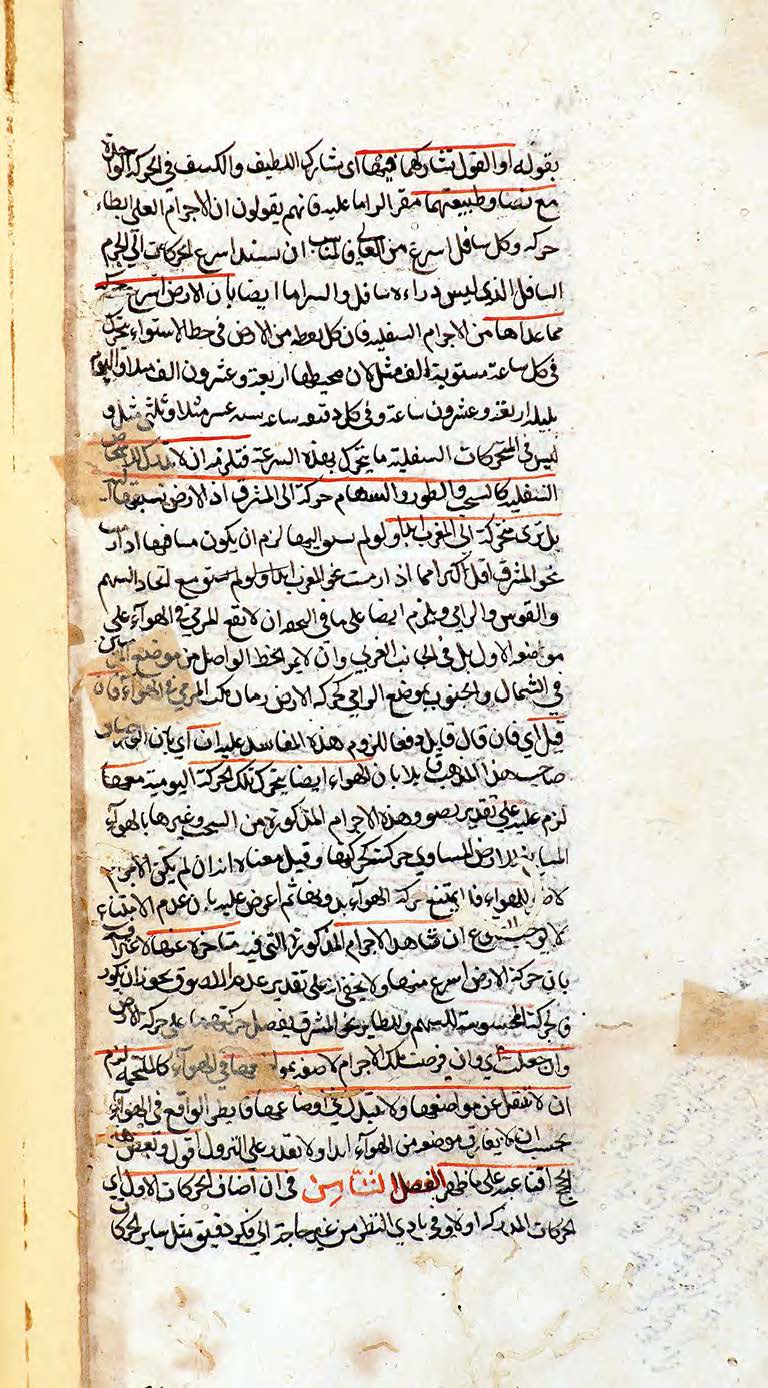 بقوله او القول تشاركهما فيها اى تشارك اللطيف والكسف فى الحركة الواحدة
مع تضاد طبيعتهما مقر الراما عليه فانهم يقولون ان الاجرام العلى ابطاء
حركه وكل سافل اسرع من العالى فالمناسب ان يسند اسرع الحركات الى الجرم
السافل الذى ليس وراءه سافل والسراما ايضا بان الارض اسرع حركة
مما عداها من الاجرام السفليه فان كل نقطه من الارض فى خط الاستواء يتحرك
فى كل ساعة مستوية الف مثل لان محيطها اربعة وعشرون الف ميلا واليوم
بليله اربعة وعشرون ساعة وفى كل دقيقه ساعه سته عسر ميلا وثلثى ميل و
ليس فى المتحركات السفلية ما يتحرك بهذه السرعة فتلزمه ان لا يدرك
السفليه كالسحب والطيور والسهام حركة الى المشرق اذ الارض تسبقها
بل ترى متحركة الى المغرب ابدا ولو لم سبق اليها لزم ان يكون مسافتها اذا رميت
نحو المشرق اقل اكثر مما اذا رمت نحو المغرب ابدا ولو لم مع اتحاد السهم
والقوس والرامى ويلزم ايضا على ما فى ان لا يقع المرمى فى الهوآء على
موضعه الاول بل فى الجانب الغربى وان لا يمر الخط الواصل من موضع
فى الشمال والجنوب بموضع الرامى لحركة الارض زمان مكث المرمى فى الهوآء فان
قيل اى فان قال قايل دفعا للزوم هذه المفاسد عليه ان اى بان
صاحب هذا المذهب قايلا بان الهواء ايضا يتحرك تلك الحركة اليومية معها
لزم عليه على تقدير لصوق هذه الاجرام المذكورة من السحب وغيرها بالهوآء
للارض المساوى حركته لحركتها وقيل معناه انه ان لم يكن الاجرام
للهواء فا حركة الهوآء بل ثم اعرض عليه بان عدم الامتناع
ان تشاهد الاجرام المذكورة التى فيه متأخرة عنها لاعترافهم
بان حركة الارض اسرع منها ولا يخفى انه على تقدير عدم اللصوق يجوز ان يكون
الحركة المحسوسة للسهم وللطاير نحو المشرق بفضل حركتهما على حركة الارض
وان جعلت اى وان فرضت تلك الاجرام لاصقة فى الهوآء كالملتحمة لزم
ان لا تنتقل عن مواضعها ولا تتبدل فى اوضاعها فايطر الواقع فى الهوآء
يجب ان لا يفارق موضعه من الهوآء ابدا ولا يقدر على النزول اقول وبعض هذه
الحجج اقناعيه على ما ظهر الفصل الثامن فى ان اضاف الحركات الاول اى
الحركات المدركه اولا وفى بادى النظر من غير حاجة الى فكر دقيق مثل ساير الحركات